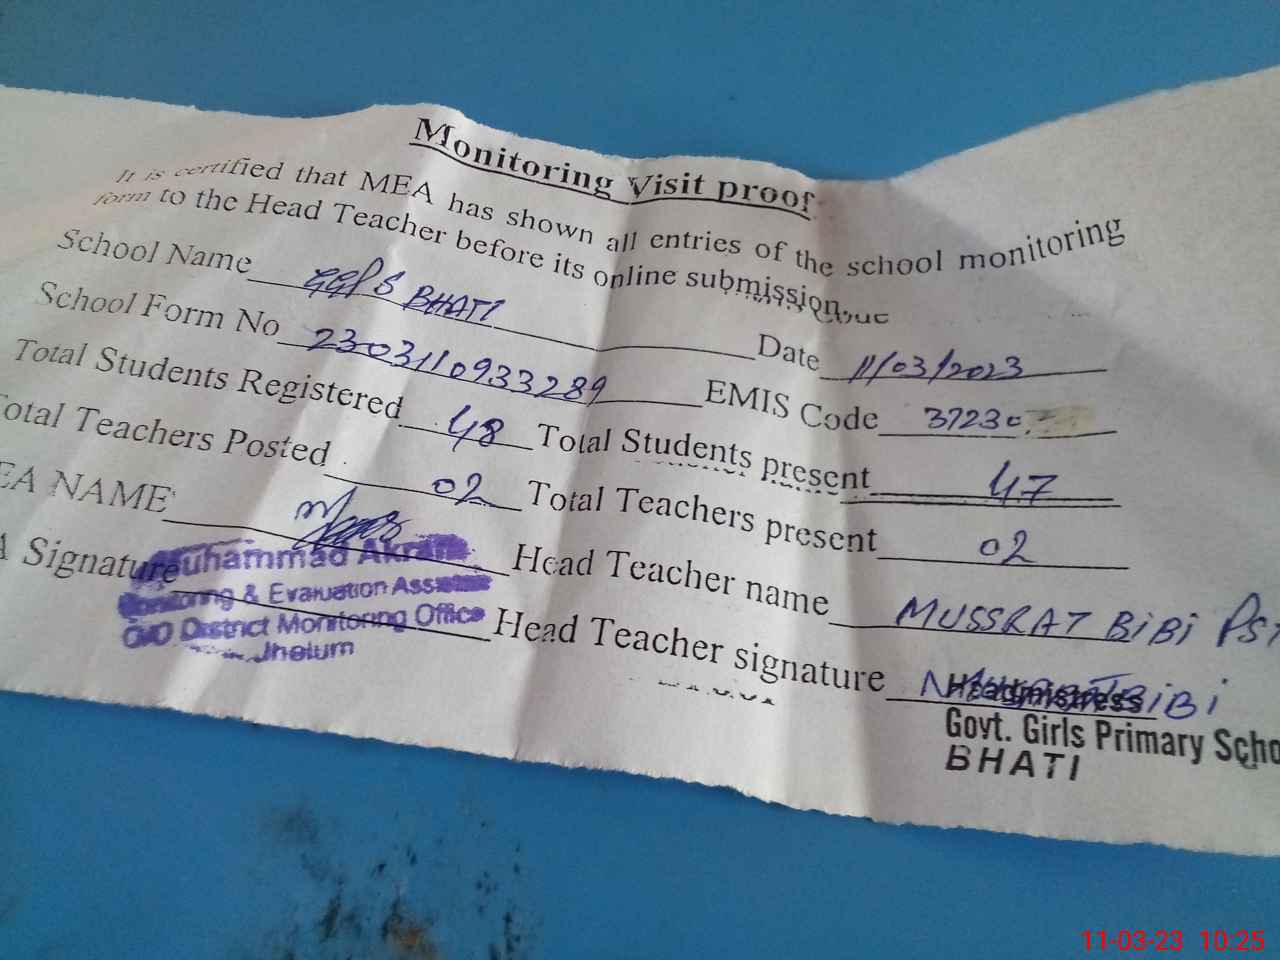 Monitoring Visit proof
It is certified that MEA has shown all entries of the school monitoring
form to the Head Teacher before its online submission.
School Name GGPS BHATI Date 11/03/2023
School Form No 2303110933289 EMIS Code 37230
Total Students Registered 48 Total Students present 47
Total Teachers Posted 02 Total Teachers present 02
EA NAME Head Teacher name MUSSRAT BiBi PST
A Signature Head Teacher signature MUSSRAT BiBi
Muhammad Akram
Monitoring & Evaluation Assistant
O/O District Monitoring Office
Jhelum
Headmistress
Govt. Girls Primary Scho
BHATI
11-03-23 10:25